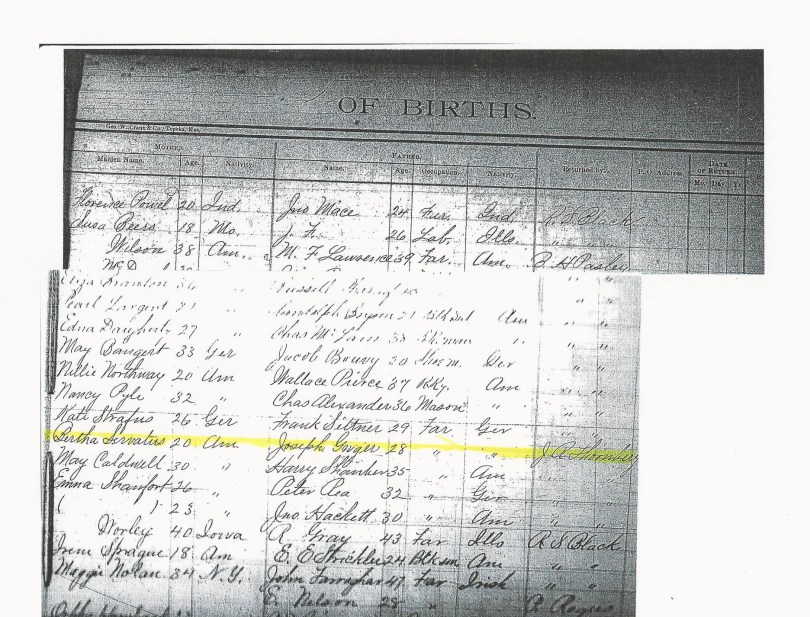 OF BIRTHS.
Geo. W. Crane & Co., Topeka, Kas.
MOTHER. FATHER. DATE OF RETURN.
Maiden Name. Age. Nativity. Name. Age. Occupation. Nativity. Returned by. P. O. Address. Mo. Day Yr.
Florence Powel 20 Ind. Jno Mace 24 Far. Ind. R S Black
Susa Beers 18 Mo. J. F. 26 Lab. Ills. " "
Wilson 38 Am. M. F. Lawrence 39 Far. Am. B. H Pasley
McD
" "
Pearl Largent " Am " "
Edna Daugherty 27 " Chas " "
May Bangert 33 Ger Jacob Bouvy 30 Ger " "
Nellie Northway 20 Am Wallace Pierce 37 R.Ry. Am " "
Nancy Pyle 32 " Chas Alexander 36 Mason " " "
Kate Strafus 26 Ger Frank Seltner 29 Far Ger " "
Bertha Servatius 20 Am Joseph Goger 28 " "
May Caldwell 30 " Harry 35 Am " "
Emma Shanfort 26 " Peter Rea 32 " Ger " "
( ) 23 " Jno. Hackett 30 " Am " "
Worley 40 Iowa R Gray 43 Far Ills R S Black
Irene Sprague 18 Am E. E Strickler 24 Blksm Am " "
Maggie Nolan 34 N.Y. John Farraghar 47 Far Irish " "
E. Nelson 28 "